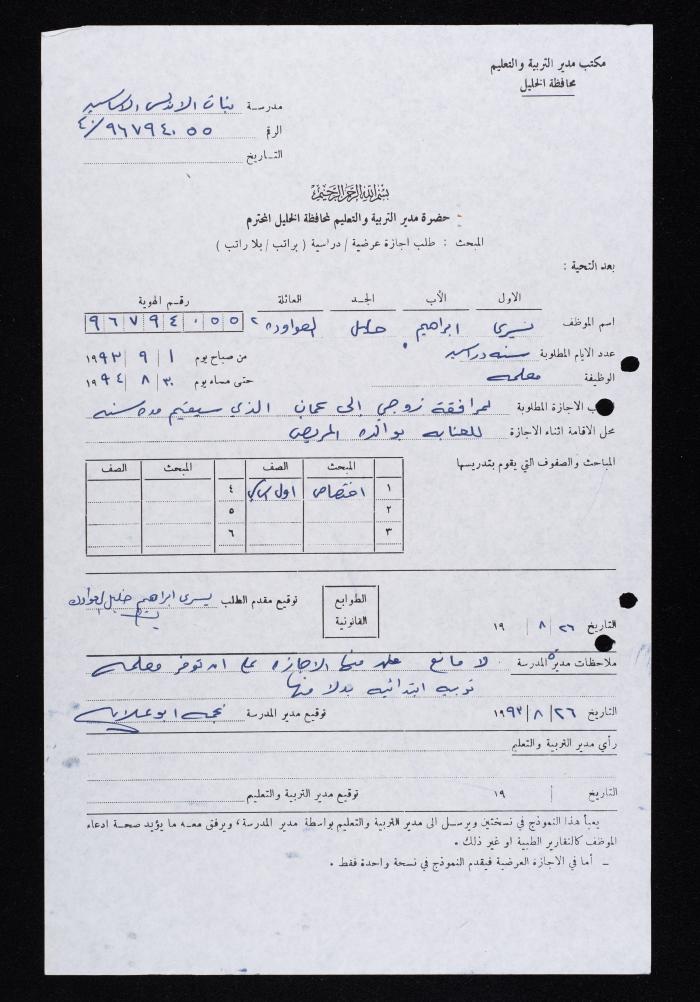 مكتب مدير التربية والتعليم
محافظة الخليل
مدرسة بنات الاندلس الاساسية
الرقم ٩٦٧٩٤٠٥٥
التاريخ
بسم الله الرحمن الرحيم
حضرة مدير التربية والتعليم لمحافظة الخليل المحترم
المبحث : طلب اجازة عرضية / دراسية ( براتب / بلا راتب )
بعد التحية :
الاول الأب الجد العائلة رقم الهوية
اسم الموظف يسرى ابراهيم خليل العواوده ٩٦٧٩٤٠٥٥
عدد الايام المطلوبة سنه دراسيه من صباح يوم ١ / ٩ / ١٩٩٣
الوظيفة معلمه حتى مساء يوم ٣٠ / ٨ / ١٩٩٤
ب الاجازة المطلوبة لمرافقة زوجي إلى عمان الذي سيقيم مده سنه
محل الاقامة اثناء الاجازة للعنايه بوالده المريض
المباحث والصفوف التي يقوم بتدريسها
المبحث الصف المبحث الصف
١ اختصاص اول ٤
٢ ٥
٣ ٦
الطوابع القانونية
توقيع مقدم الطلب يسرى ابراهيم خليل العواوده
التاريخ ٢٦ / ٨ / ١٩
ملاحظات مدير المدرسة لا مانع من منحها الاجازه على ان توفر معلمه
تربيه ابتدائيه بدلا منها
التاريخ ٢٦ / ٨ / ١٩٩٣ توقيع مدير المدرسة نجمه ابو
رأي مدير التربية والتعليم
التاريخ / ١٩ توقيع مدير التربية والتعليم
يعبأ هذا النموذج في نسختين ويرسل الى مدير التربية والتعليم بواسطة مدير المدرسة ، ويرفق معه ما يؤيد صحة ادعاء
الموظف كالتقارير الطبية او غير ذلك .
ـ أما في الاجازة العرضية فيقدم النموذج في نسخة واحدة فقط .